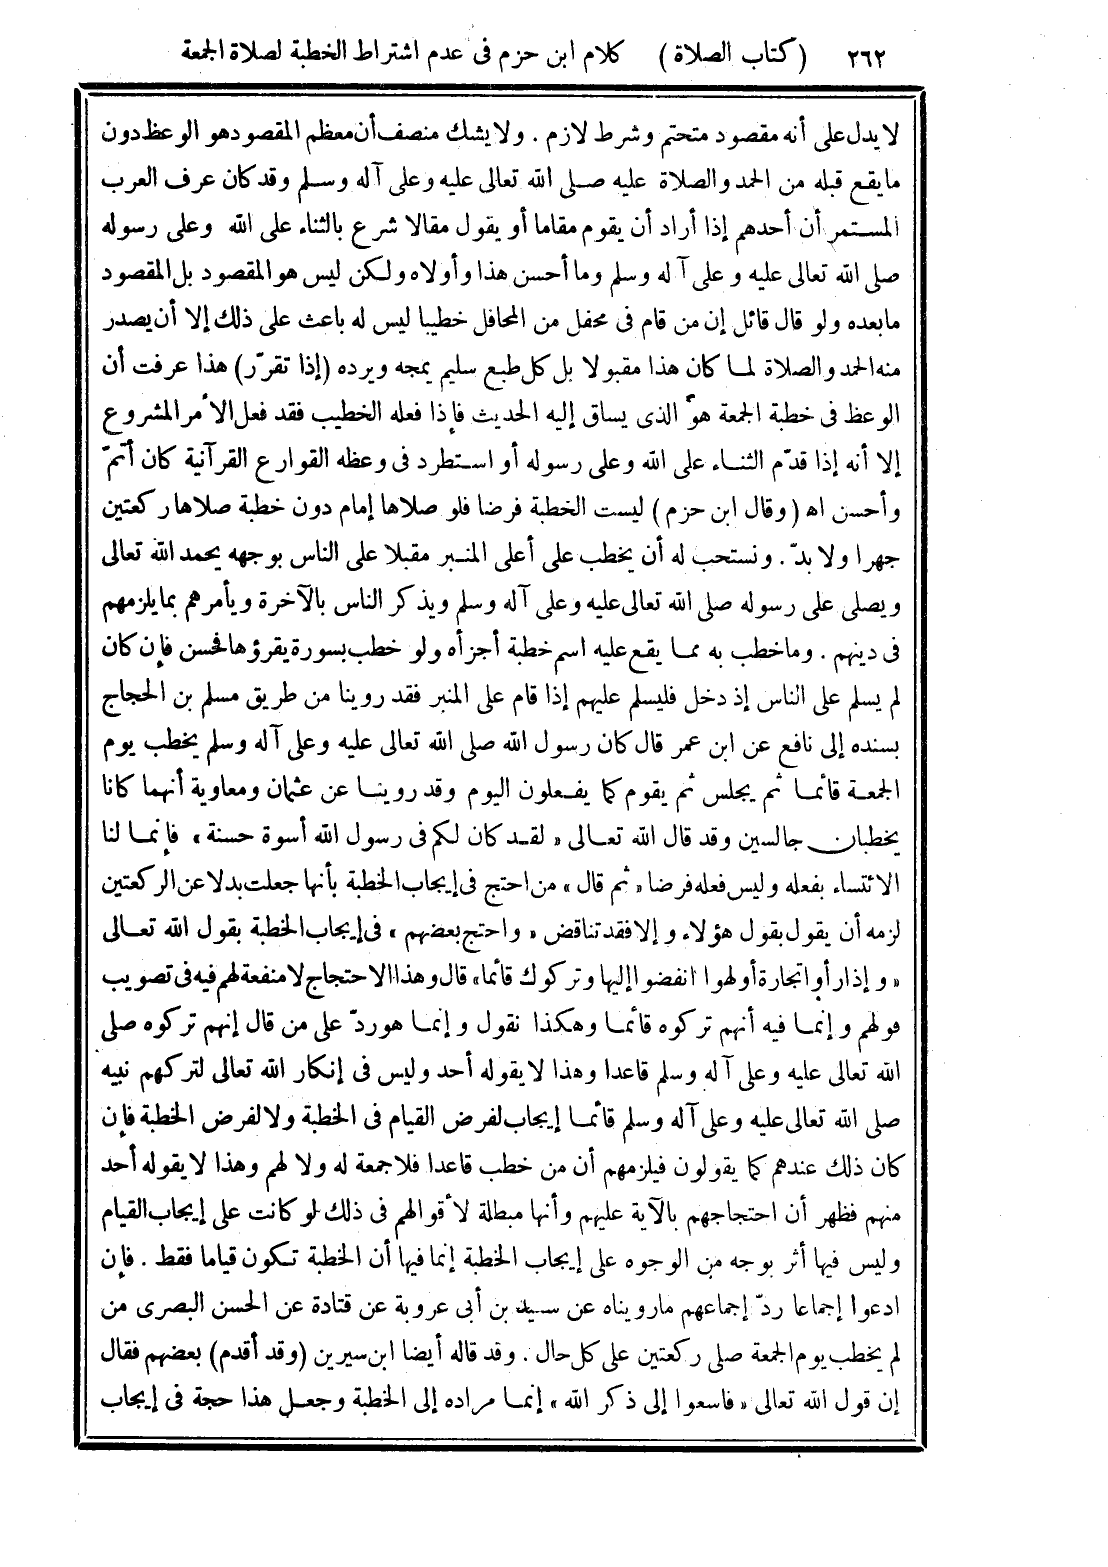 ٢٦٢ (كتاب الصلاة) كلام ابن حزم فى عدم اشتراط الخطبة لصلاة الجمعة
لا يدل على أنه مقصود متحتم وشرط لازم . ولا يشك منصف أن معظم المقصود هو الوعظ دون
ما يقع قبله من الحمد والصلاة عليه صلى الله تعالى عليه وعلى آله وسلم وقد كان عرف العرب
المستمر أن أحدهم إذا أراد أن يقوم مقاما أو يقول مقالا شرع بالثناء على الله وعلى رسوله
صلى الله تعالى عليه وعلى آله وسلم وما أحسن هذا وأولاه ولكن ليس هو المقصود بل المقصود
ما بعده ولو قال قائل إن من قام فى محفل من المحافل خطيبا ليس له باعث على ذلك إلا أن يصدر
منه الحمد والصلاة لما كان هذا مقبولا بل كل طبع سليم يمجه ويرده (إذا تقرّر) هذا عرفت أن
الوعظ فى خطبة الجمعة هو الذى يساق إليه الحديث فإذا فعله الخطيب فقد فعل الأمر المشروع
إلا أنه إذا قدّم الثناء على الله وعلى رسوله أو استطرد فى وعظه القوارع القرآنية كان أتمّ
وأحسن اه (وقال ابن حزم) ليست الخطبة فرضا فلو صلاها إمام دون خطبة صلاها ركعتين
جهرا ولا بدّ . ونستحب له أن يخطب على أعلى المنبر مقبلا على الناس بوجهه يحمد الله تعالى
ويصلى على رسوله صلى الله تعالى عليه وعلى آله وسلم ويذكر الناس بالآخرة ويأمرهم بما يلزمهم
فى دينهم . وما خطب به مما يقع عليه اسم خطبة أجزأه ولو خطب بسورة يقرؤها فحسن فإن كان
لم يسلم على الناس إذ دخل فليسلم عليهم إذا قام على المنبر فقد روينا من طريق مسلم بن الحجاج
بسنده إلى نافع عن ابن عمر قال كان رسول الله صلى الله تعالى عليه وعلى آله وسلم يخطب يوم
الجمعة قائما ثم يجلس ثم يقوم كما يفعلون اليوم وقد روينا عن عثمان ومعاوية أنهما كانا
يخطبان جالسين وقد قال الله تعالى « لقد كان لكم فى رسول الله أسوة حسنة » فإنما لنا
الائتساء بفعله وليس فعله فرضا « ثم قال » من احتج فى إيجاب الخطبة بأنها جعلت بدلا عن الركعتين
لزمه أن يقول بقول هؤلاء وإلا فقد تناقض « واحتج بعضهم » فى إيجاب الخطبة بقول الله تعالى
« وإذا رأوا تجارة أو لهوا انفضوا إليها وتركوك قائما » قال وهذا الاحتجاج لا منفعة لهم فيه فى تصويب
قولهم وإنما فيه أنهم تركوه قائما وهكذا نقول وإنما هو ردّ على من قال إنهم تركوه صلى
الله تعالى عليه وعلى آله وسلم قاعدا وهذا لا يقوله أحد وليس فى إنكار الله تعالى لتركهم نبيه
صلى الله تعالى عليه وعلى آله وسلم قائما إيجاب لفرض القيام فى الخطبة ولا لفرض الخطبة فإن
كان ذلك عندهم كما يقولون فيلزمهم أن من خطب قاعدا فلا جمعة له ولا لهم وهذا لا يقوله أحد
منهم فظهر أن احتجاجهم بالآية عليهم وأنها مبطلة لأقوالهم فى ذلك لو كانت على إيجاب القيام
وليس فيها أثر بوجه من الوجوه على إيجاب الخطبة إنما فيها أن الخطبة تكون قياما فقط . فإن
ادعوا إجماعا ردّ إجماعهم ما رويناه عن سعيد بن أبى عروبة عن قتادة عن الحسن البصرى من
لم يخطب يوم الجمعة صلى ركعتين على كل حال . وقد قاله أيضا ابن سيرين (وقد أقدم) بعضهم فقال
إن قول الله تعالى « فاسعوا إلى ذكر الله » إنما مراده إلى الخطبة وجعل هذا حجة فى إيجاب